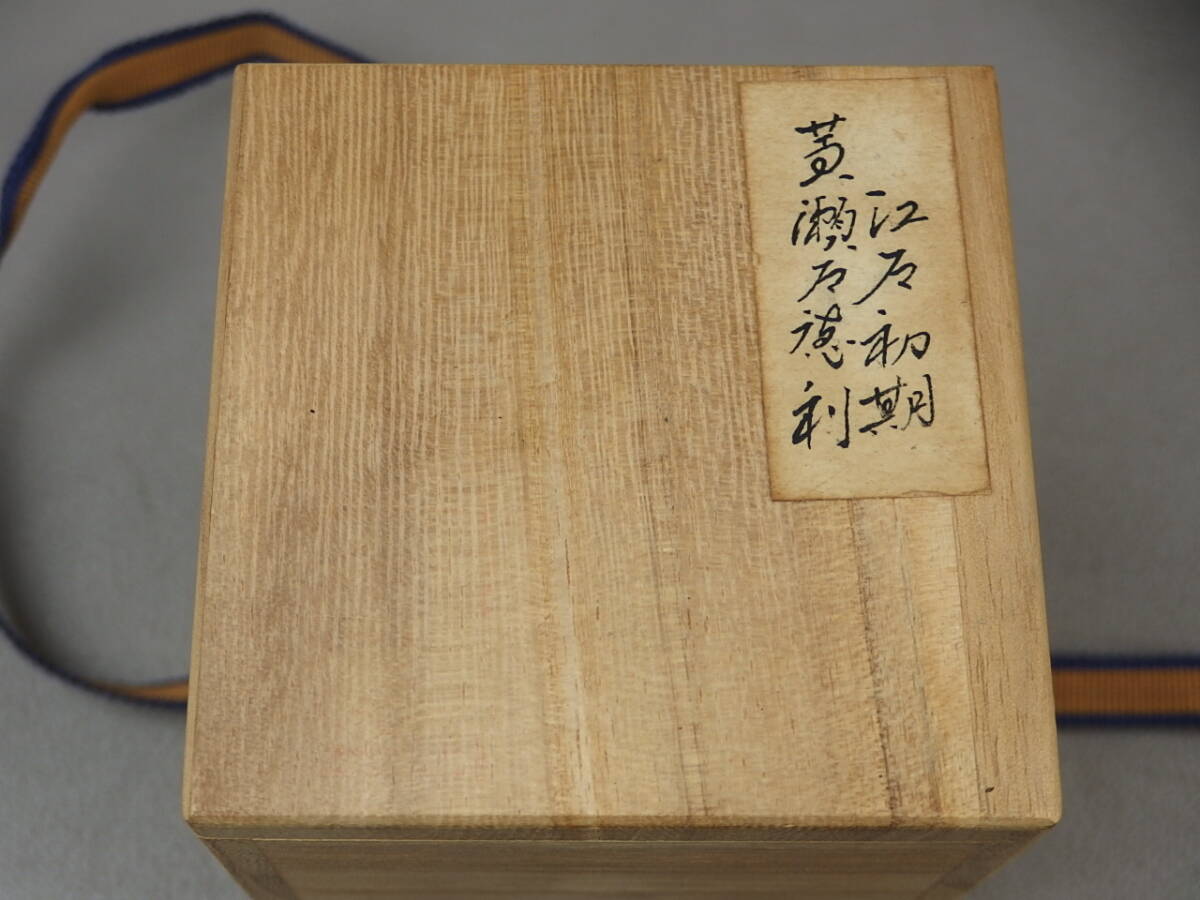 江戸初期
黄瀬戸徳利